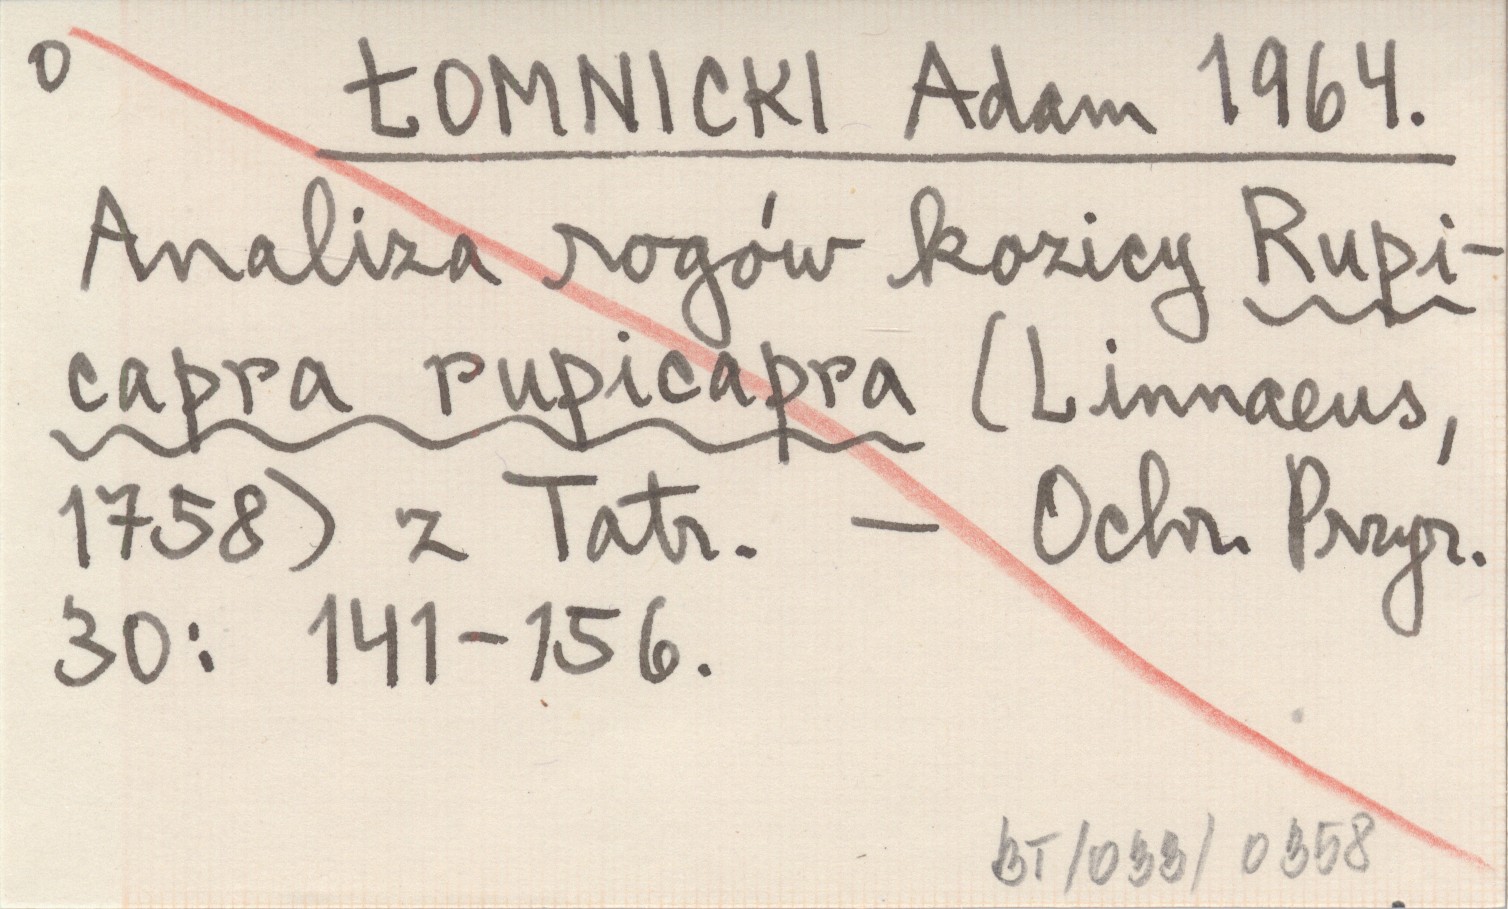 0
ŁOMNICKI Adam 1964.
Analiza rogów kozicy Rupi-
capra rupicapra (Linnaeus,
1758) z Tatr. – Ochr. Przyr.
30: 141-156.
BT/033/0358